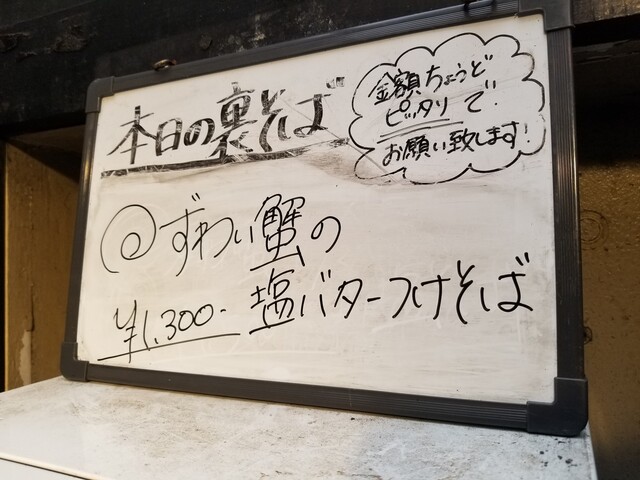 本日の裏そば
金額ちょうど
ピッタリで!
お願い致します!
@ずわい蟹の
¥1,300-塩バターつけそば